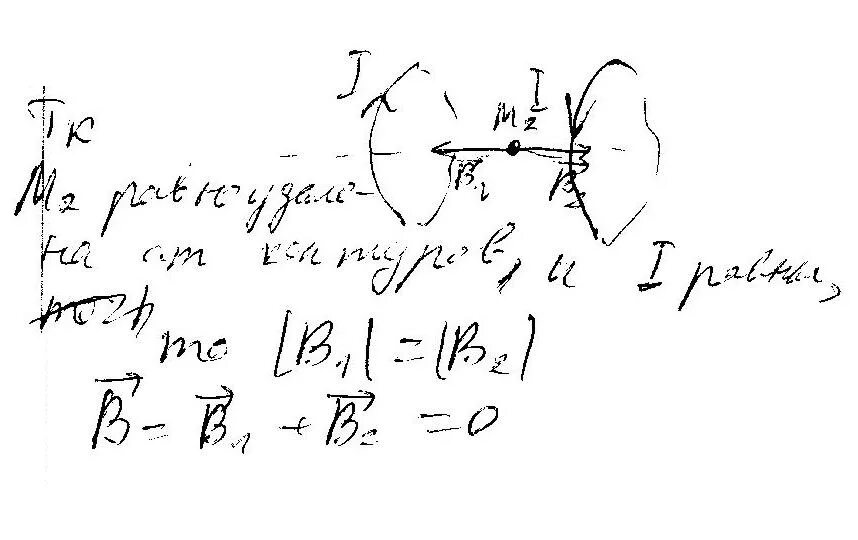 I
I
M₂
B⃗₁
B⃗₂
Тк
M₂ равноудале-
на от контуров, и I равны,
то |B₁| = |B₂|
B⃗ = B⃗₁ + B⃗₂ = 0